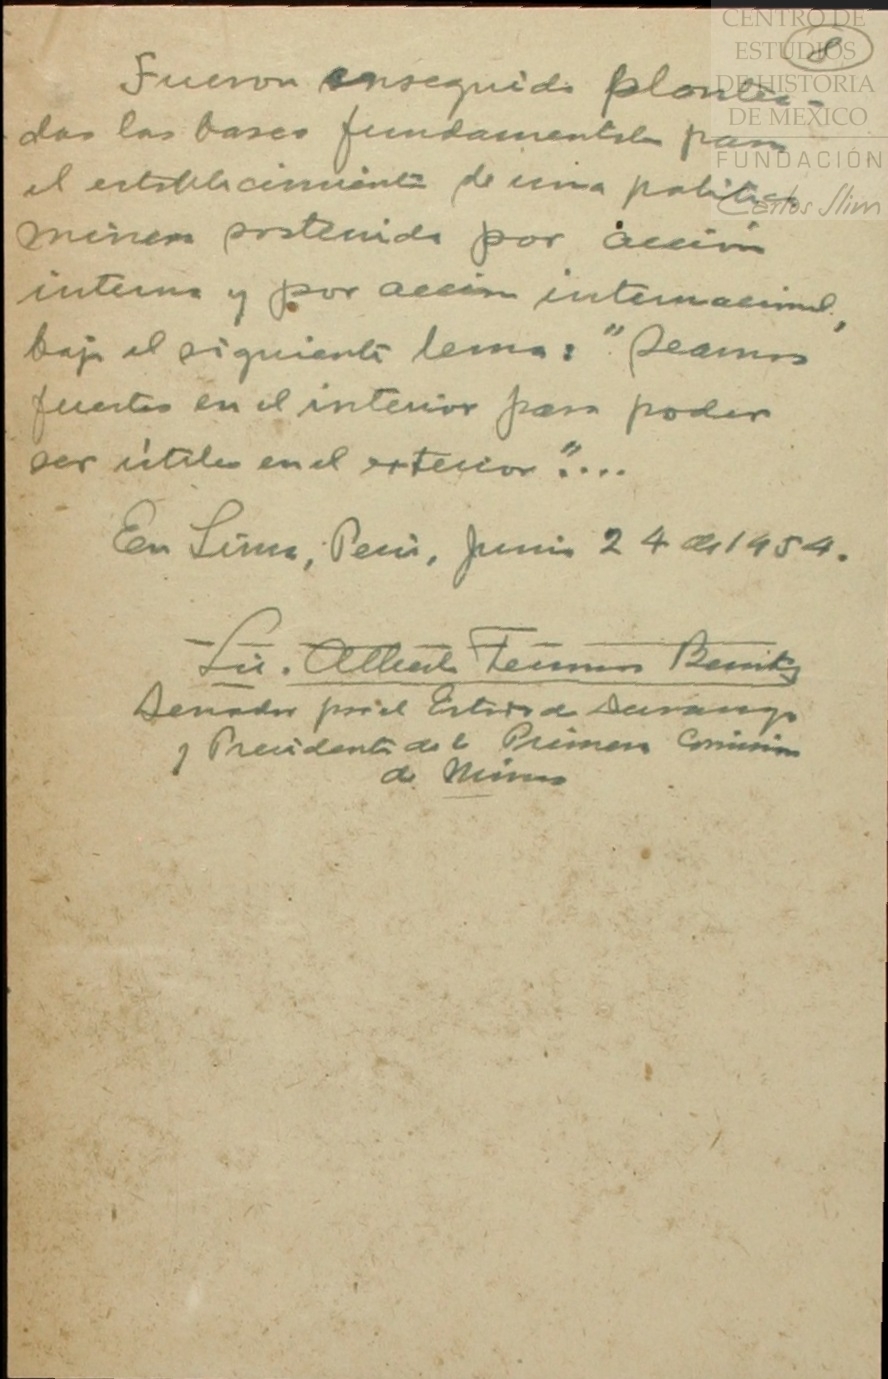 CENTRO DE
ESTUDIOS
DE HISTORIA
DE MEXICO
FUNDACIÓN
Carlos Slim
8
Fueron enseguida plantea-
das las bases fundamentales para
el establecimiento de una politica
minera sostenida por acción
interna y por accion internacional,
bajo el siguiente lema: "Seamos
fuertes en el interior para poder
ser útiles en el exterior"....
En Lima, Perú, Junio 24 de 1954.
Lic. Alberto Terrones Benitez
Senador por el Estado de Durango
y Presidente de la Primera Comision
de Minas